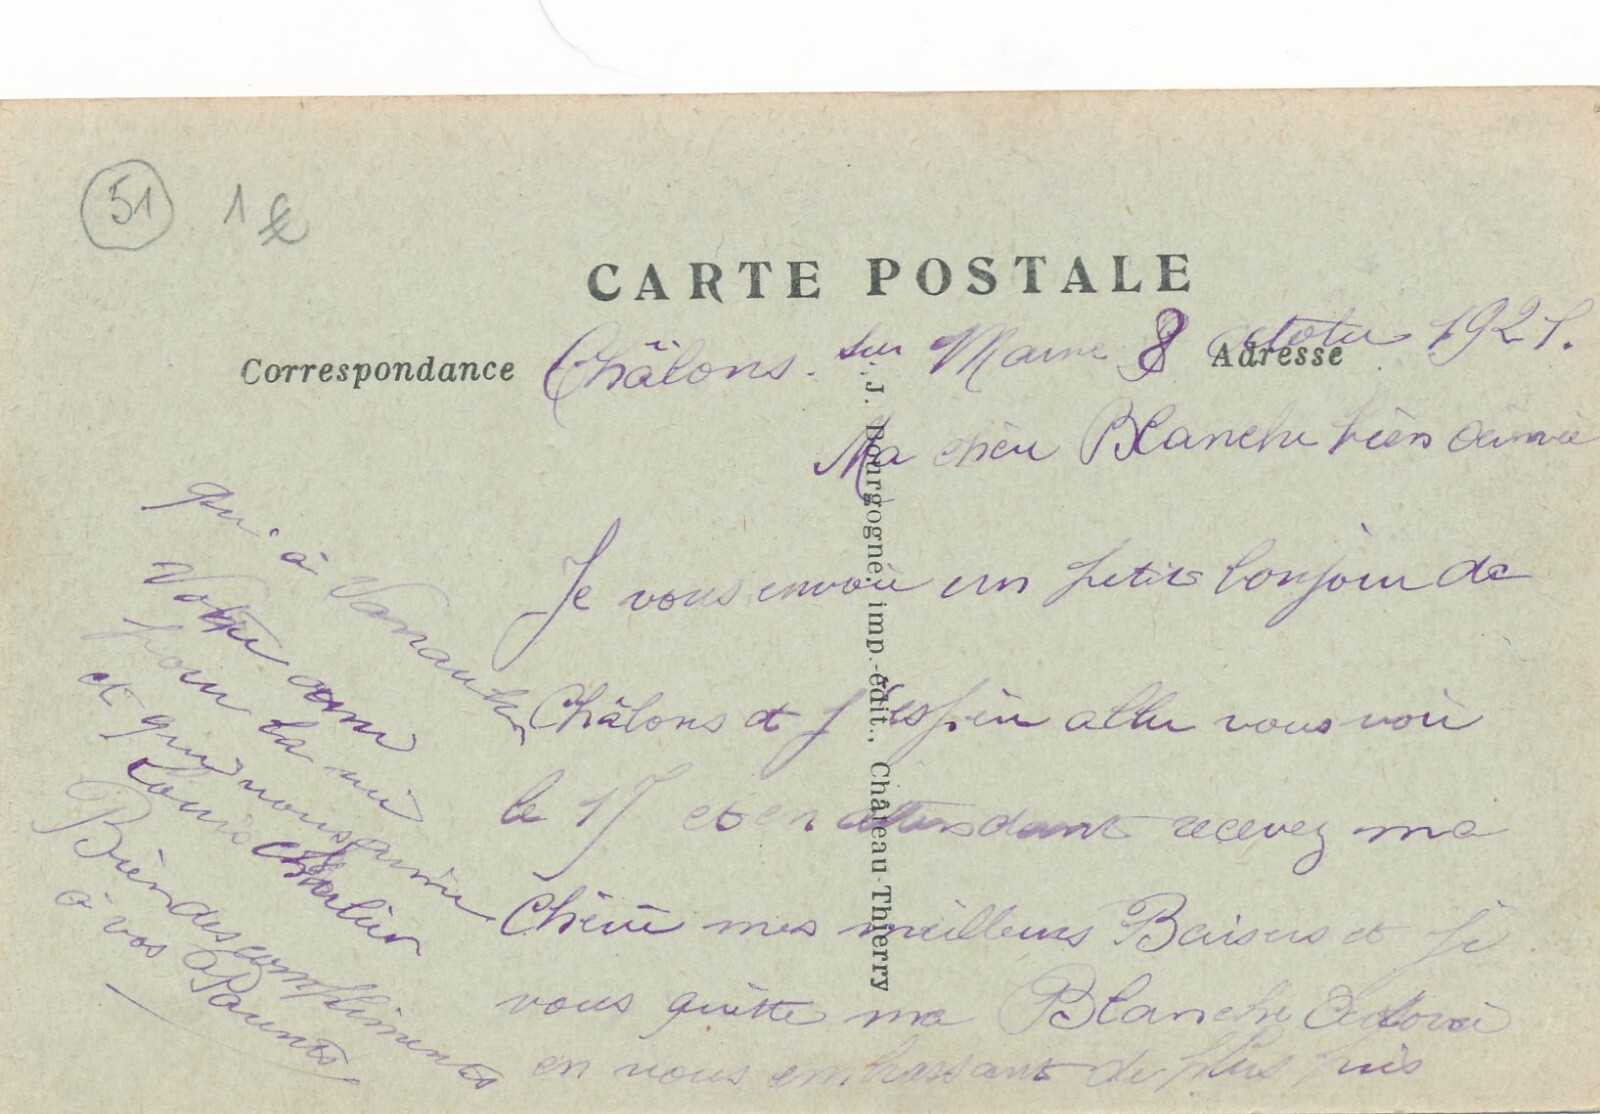 51 1 €
CARTE POSTALE
Correspondance
Adresse
Châlons sur Marne 8 octobre 1921.
Ma chère Blanche bien aimée
Je vous envoie un petit bonjour de
Châlons et j'espère aller vous voir
le 17 et en attendant recevez ma
Chérie mes meilleurs Baisers et je
vous quitte ma Blanche Adorée
en vous embrassant de plus près
qu'à
Votre ami
pour la vie
et qui vous aime
Louis Charlier
Bien des compliments
à vos Parents
J. Bourgogne, imp.-édit., Château-Thierry